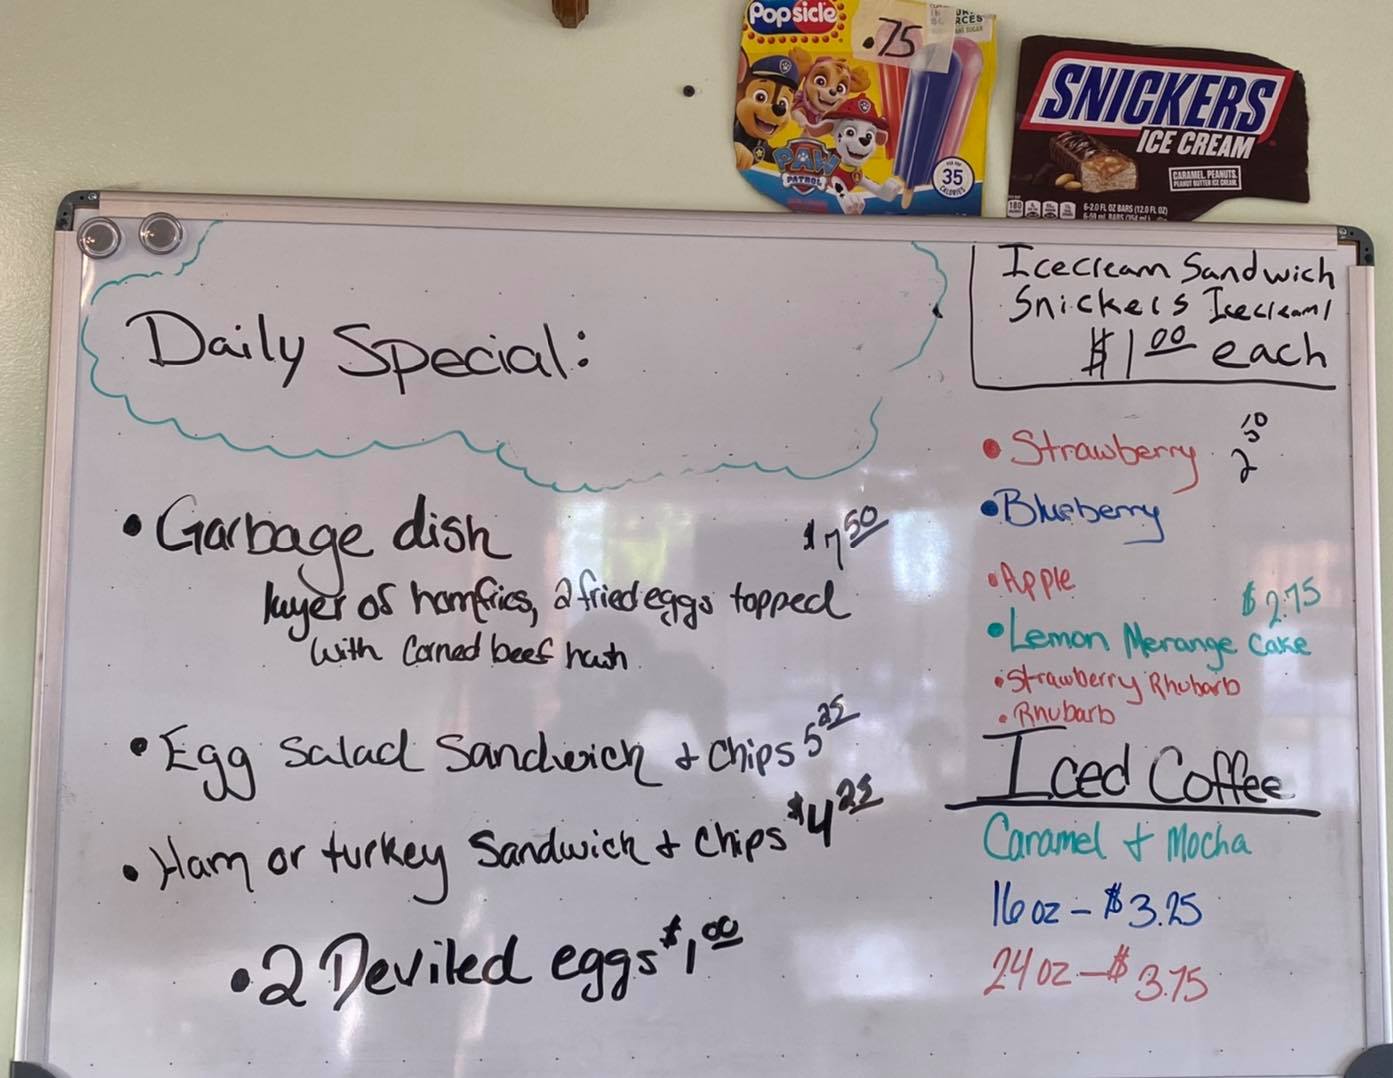 Popsicle
.75
PAW
PATROL
35
CALORIES
SNICKERS
ICE CREAM
CARAMEL, PEANUTS,
PEANUT BUTTER ICE CREAM.
180
6-2.0 FL OZ BARS (12.0 FL OZ)
Daily Special:
• Garbage dish $7 50
layer of homfries, 2 fried eggs topped
with Corned beef hash
• Egg Salad Sandwich + Chips 5 25
• Ham or turkey Sandwich + Chips $4 25
• 2 Deviled eggs $1 00
Icecream Sandwich
Snickers Icecream/
$1 00 each
• Strawberry
• Blueberry
• Apple
$2.75
• Lemon Merange Cake
• Strawberry Rhubarb
• Rhubarb
Iced Coffee
Caramel + Mocha
16 oz - $3.25
24 oz - $3.75